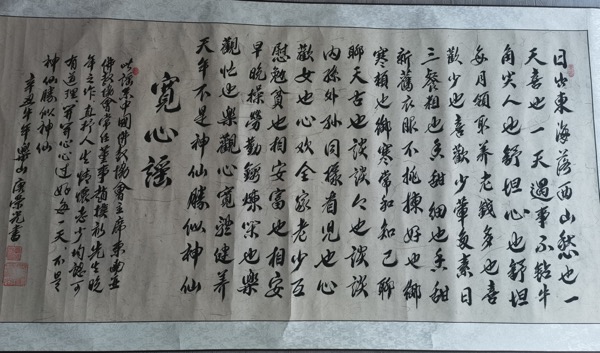 日出東海落西山愁也一
天喜也一天遇事不鑽牛
角尖人也舒坦心也舒坦
每月領取養老錢多也喜
歡少也喜歡少葷多素日
三餐粗也香甜細也香甜
新舊衣服不挑揀好也御
寒賴也御寒常和知己聊
聊天古也談談今也談談
內孫外孫同樣看兒也心
歡女也心歡全家老少互
慰勉貧也相安富也相安
早晚操勞勤鍛煉閑也樂
觀忙也樂觀心寬體健養
天年不是神仙勝似神仙
寬心謠
此謠系中國佛教協會主席東南亞
佛教協會常任董事趙樸初先生晚
年之作直抒人生情懷老少均認可
有道理開開心心過好每一天不是
神仙勝似神仙
辛丑年樂山榮光書